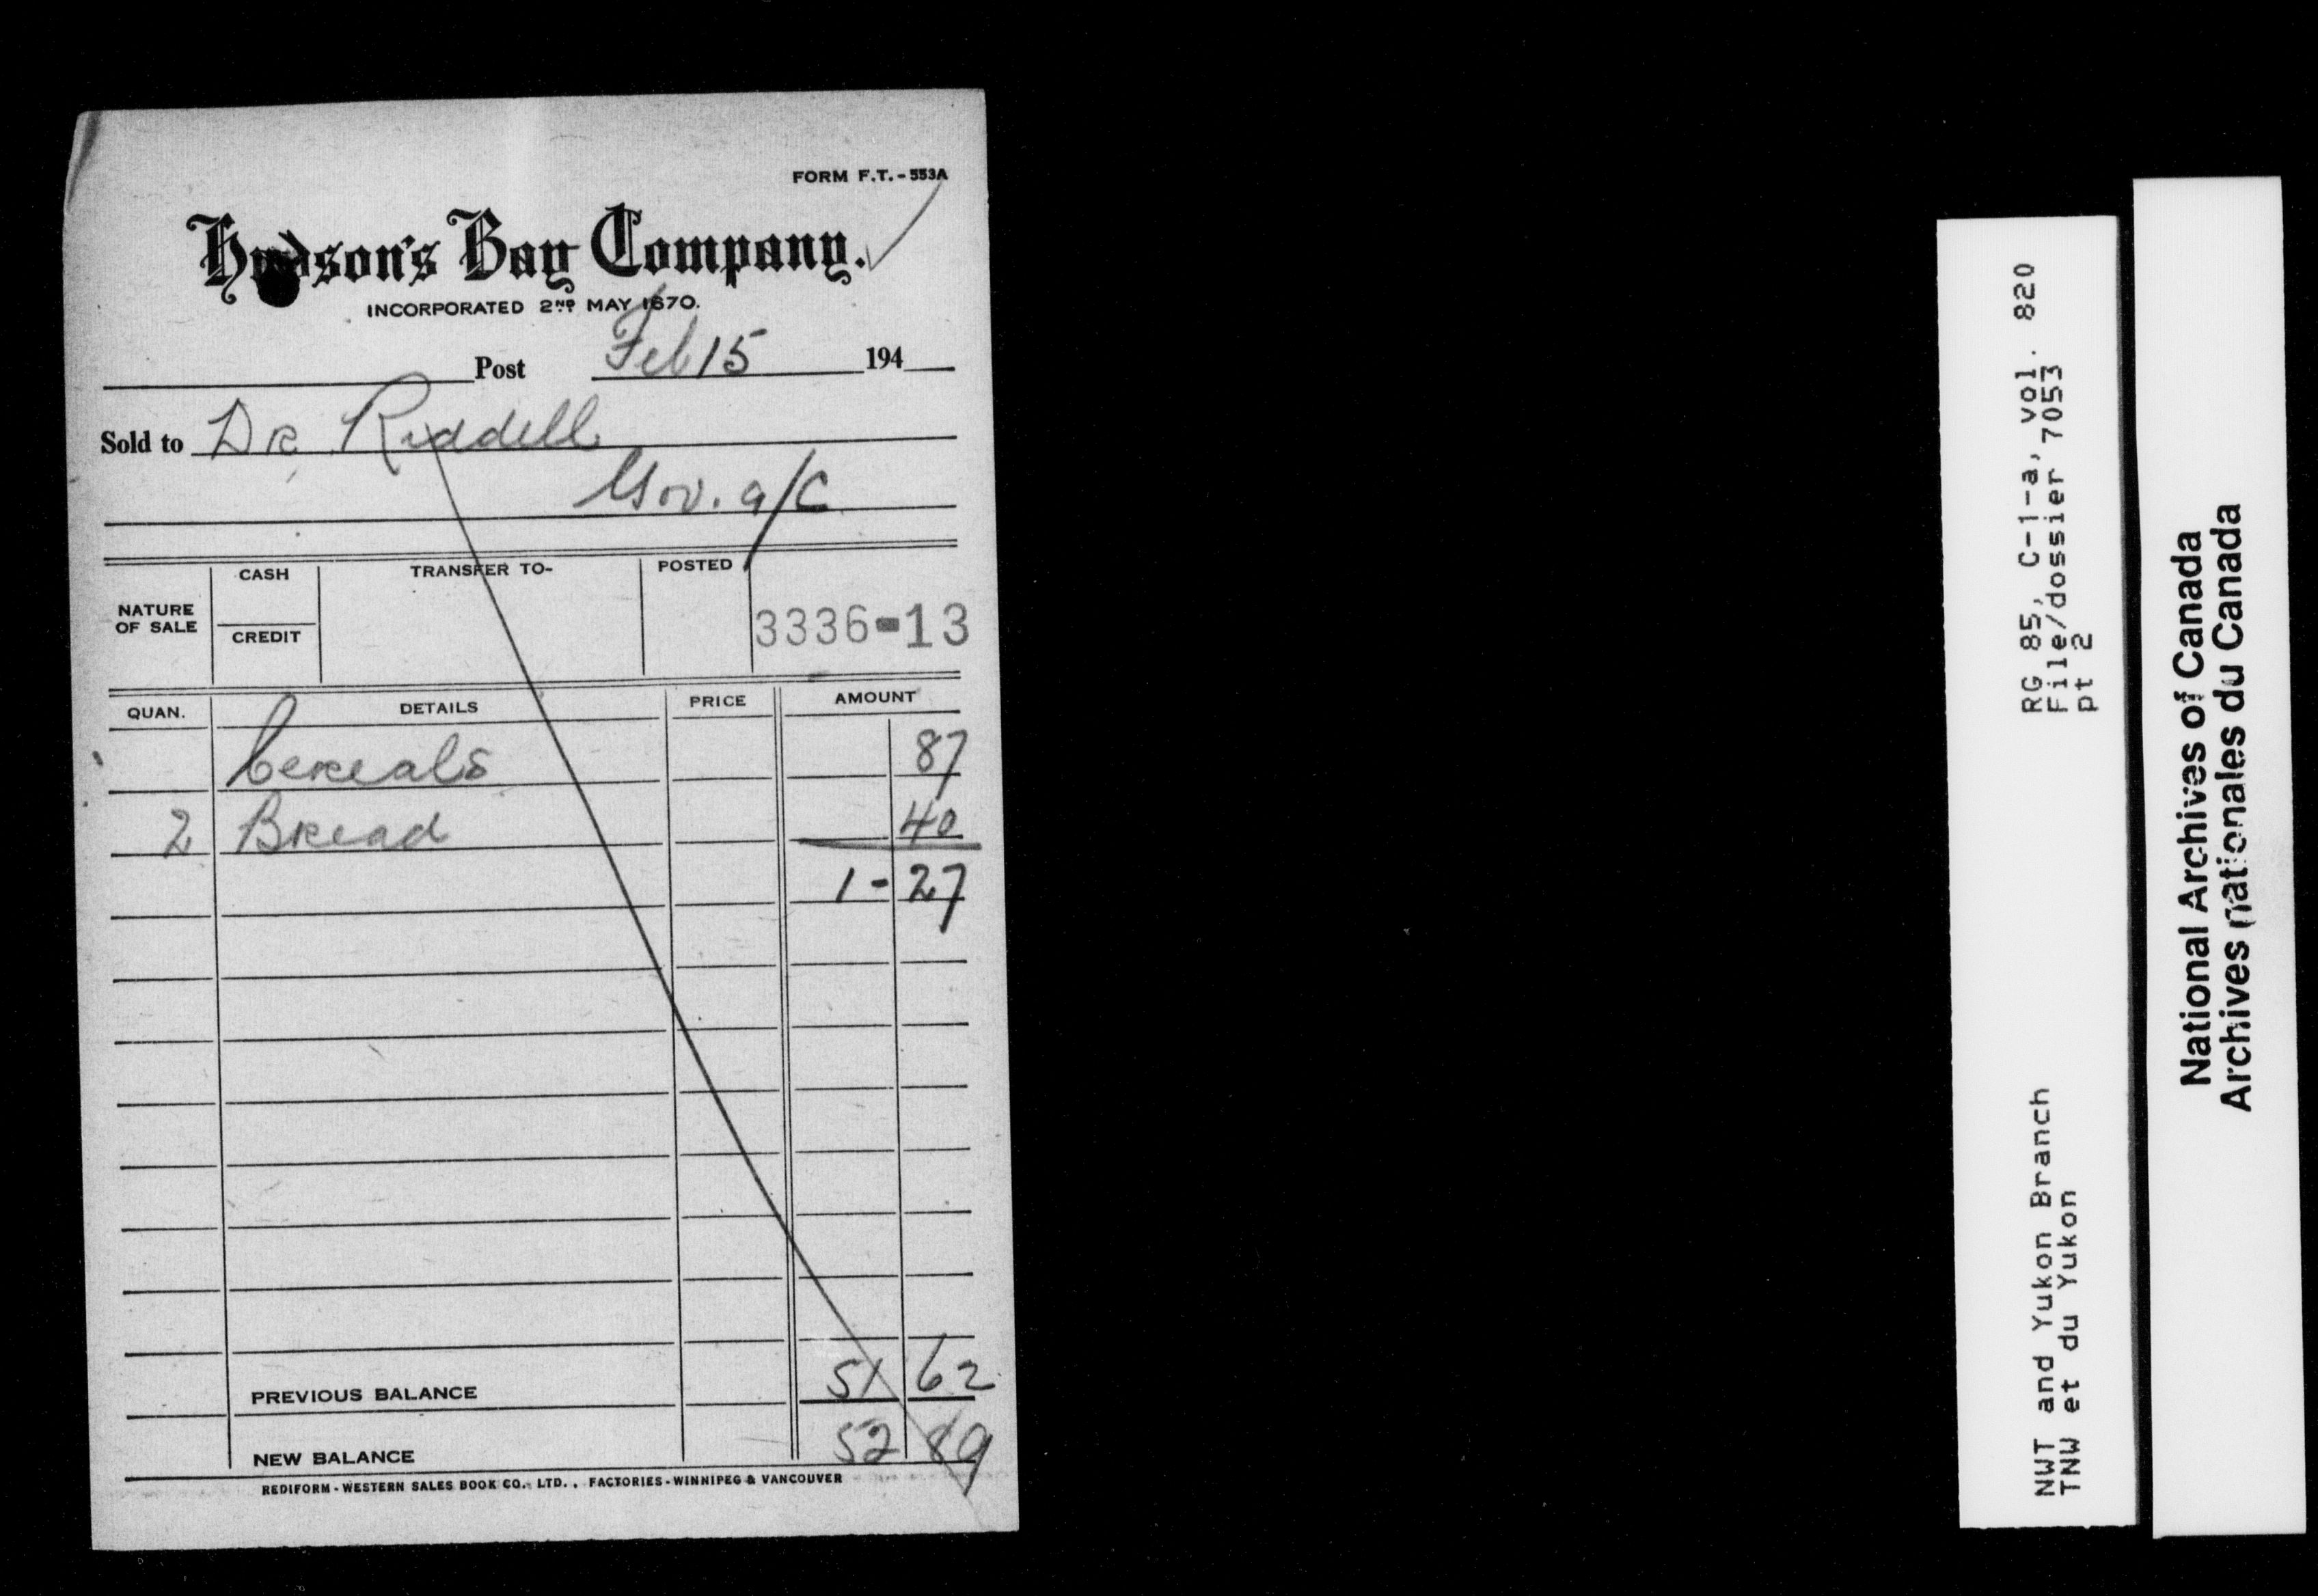 FORM F.T.-553A
Hudson's Bay Company.
INCORPORATED 2ND MAY 1670.
Post Feb 15 194
Sold to DR. Riddell
Gov. a/c
NATURE OF SALE CASH CREDIT TRANSFER TO- POSTED 3336-13
QUAN. DETAILS PRICE AMOUNT
Cereals 87
2 Bread 40
1-27
PREVIOUS BALANCE 51 62
NEW BALANCE 52 89
REDIFORM-WESTERN SALES BOOK CO. LTD., FACTORIES-WINNIPEG & VANCOUVER
NWT and Yukon Branch RG 85, C-1-a, vol. 820
TNW et du Yukon File/dossier 7053
pt 2
National Archives of Canada
Archives nationales du Canada